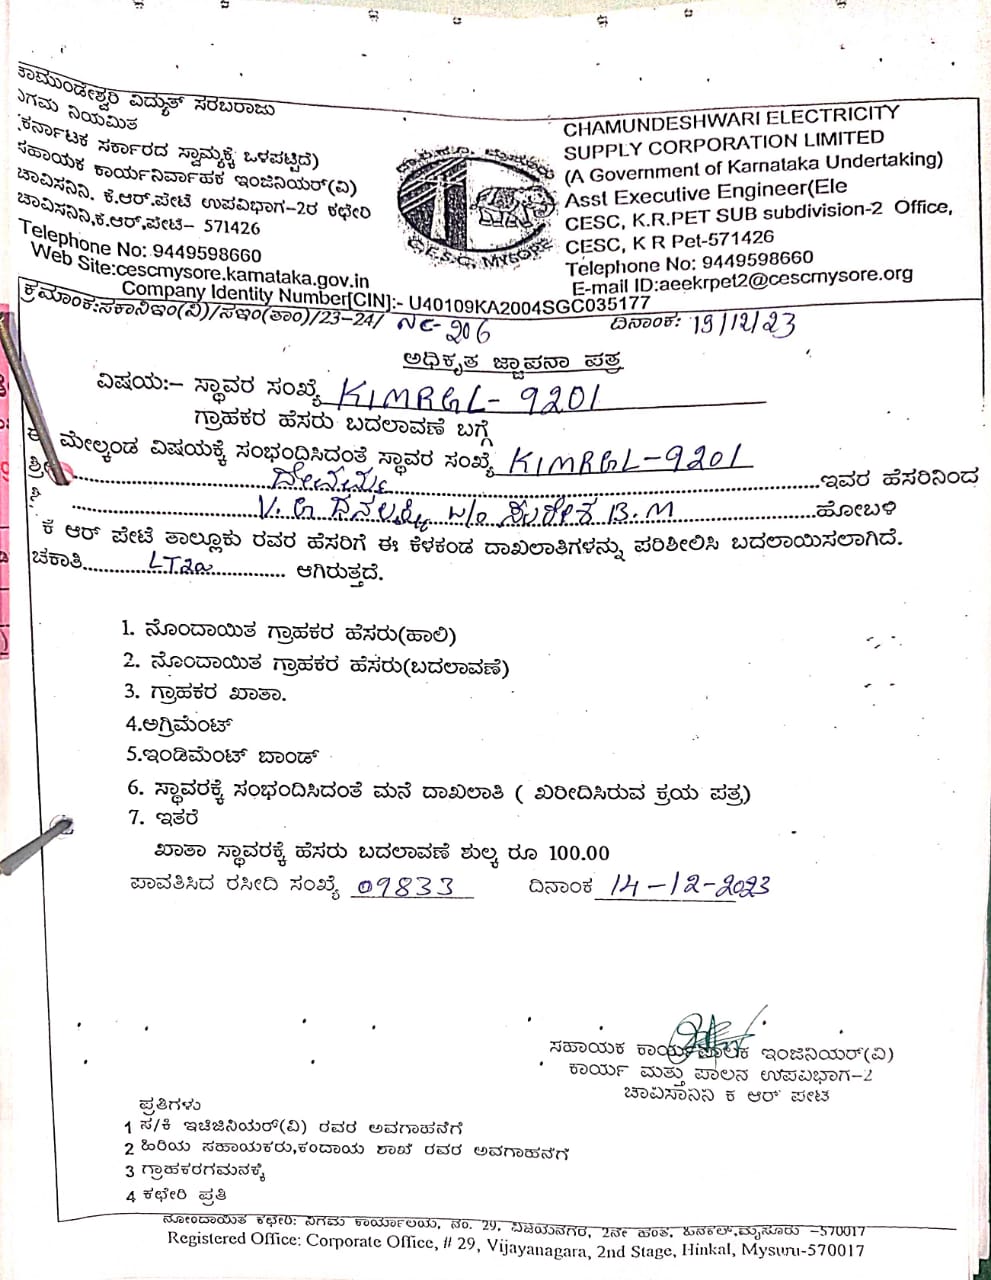 ಚಾಮುಂಡೇಶ್ವರಿ ವಿದ್ಯುತ್ ಸರಬರಾಜು
ನಿಗಮ ನಿಯಮಿತ
(ಕರ್ನಾಟಕ ಸರ್ಕಾರದ ಸ್ವಾಮ್ಯಕ್ಕೆ ಒಳಪಟ್ಟಿದೆ)
ಸಹಾಯಕ ಕಾರ್ಯನಿರ್ವಾಹಕ ಇಂಜಿನಿಯರ್(ವಿ)
ಚಾವಿಸನಿನಿ. ಕೆ.ಆರ್.ಪೇಟೆ ಉಪವಿಭಾಗ-2ರ ಕಛೇರಿ
ಚಾವಿಸನಿನಿ,ಕೆ.ಆರ್.ಪೇಟೆ- 571426
Telephone No: 9449598660
Web Site:cescmysore.karnataka.gov.in
CHAMUNDESHWARI ELECTRICITY
SUPPLY CORPORATION LIMITED
(A Government of Karnataka Undertaking)
Asst Executive Engineer(Ele
CESC, K.R.PET SUB subdivision-2 Office,
CESC, K R Pet-571426
Telephone No: 9449598660
E-mail ID:aeekrpet2@cescmysore.org
C.E.S.C, MYSORE
Company Identity Number[CIN]:- U40109KA2004SGC035177
ಕ್ರಮಾಂಕ:ಸಕಾನಿಇಂ(ವಿ)/ಸಇಂ(ತಾಂ)/23-24/ NC-206 ದಿನಾಂಕ: 19/12/23
ಅಧಿಕೃತ ಜ್ಞಾಪನಾ ಪತ್ರ
ವಿಷಯ:- ಸ್ಥಾವರ ಸಂಖ್ಯೆ KIMRGL-9201
ಗ್ರಾಹಕರ ಹೆಸರು ಬದಲಾವಣೆ ಬಗ್ಗೆ
ಈ ಮೇಲ್ಕಂಡ ವಿಷಯಕ್ಕೆ ಸಂಭಂದಿಸಿದಂತೆ ಸ್ಥಾವರ ಸಂಖ್ಯೆ KIMRGL-9201
ಶ್ರೀ ದೇವಮ್ಮ ಇವರ ಹೆಸರಿನಿಂದ
V. G ಧನಲಕ್ಷ್ಮಿ w/o ಸುರೇಶ B.M ಹೋಬಳಿ
ಕೆ ಆರ್ ಪೇಟೆ ತಾಲ್ಲೂಕು ರವರ ಹೆಸರಿಗೆ ಈ ಕೆಳಕಂಡ ದಾಖಲಾತಿಗಳನ್ನು ಪರಿಶೀಲಿಸಿ ಬದಲಾಯಿಸಲಾಗಿದೆ.
ಚಕಾತಿ LT2a ಆಗಿರುತ್ತದೆ.
1. ನೊಂದಾಯಿತ ಗ್ರಾಹಕರ ಹೆಸರು(ಹಾಲಿ)
2. ನೊಂದಾಯಿತ ಗ್ರಾಹಕರ ಹೆಸರು(ಬದಲಾವಣೆ)
3. ಗ್ರಾಹಕರ ಖಾತಾ.
4.ಅಗ್ರಿಮೆಂಟ್
5.ಇಂಡಿಮೆಂಟ್ ಬಾಂಡ್
6. ಸ್ಥಾವರಕ್ಕೆ ಸಂಭಂದಿಸಿದಂತೆ ಮನೆ ದಾಖಲಾತಿ ( ಖರೀದಿಸಿರುವ ಕ್ರಯ ಪತ್ರ)
7. ಇತರೆ
ಖಾತಾ ಸ್ಥಾವರಕ್ಕೆ ಹೆಸರು ಬದಲಾವಣೆ ಶುಲ್ಕ ರೂ 100.00
ಪಾವತಿಸಿದ ರಸೀದಿ ಸಂಖ್ಯೆ 09833 ದಿನಾಂಕ 14-12-2023
ಸಹಾಯಕ ಕಾರ್ಯಪಾಲಕ ಇಂಜಿನಿಯರ್(ವಿ)
ಕಾರ್ಯ ಮತ್ತು ಪಾಲನ ಉಪವಿಭಾಗ-2
ಚಾವಿಸಾನಿನಿ ಕೆ ಆರ್ ಪೇಟೆ
ಪ್ರತಿಗಳು
1 ಸ/ಕಿ ಇಂಜಿನಿಯರ್(ವಿ) ರವರ ಅವಗಾಹನೆಗೆ
2 ಹಿರಿಯ ಸಹಾಯಕರು,ಕಂದಾಯ ಶಾಖೆ ರವರ ಅವಗಾಹನೆಗೆ
3 ಗ್ರಾಹಕರಗಮನಕ್ಕೆ
4 ಕಛೇರಿ ಪ್ರತಿ
ನೋಂದಾಯಿತ ಕಛೇರಿ: ನಿಗಮ ಕಾರ್ಯಾಲಯ, ನಂ. 29, ವಿಜಯನಗರ, 2ನೇ ಹಂತ, ಹಿನಕಲ್,ಮೈಸೂರು -570017
Registered Office: Corporate Office, # 29, Vijayanagara, 2nd Stage, Hinkal, Mysuru-570017